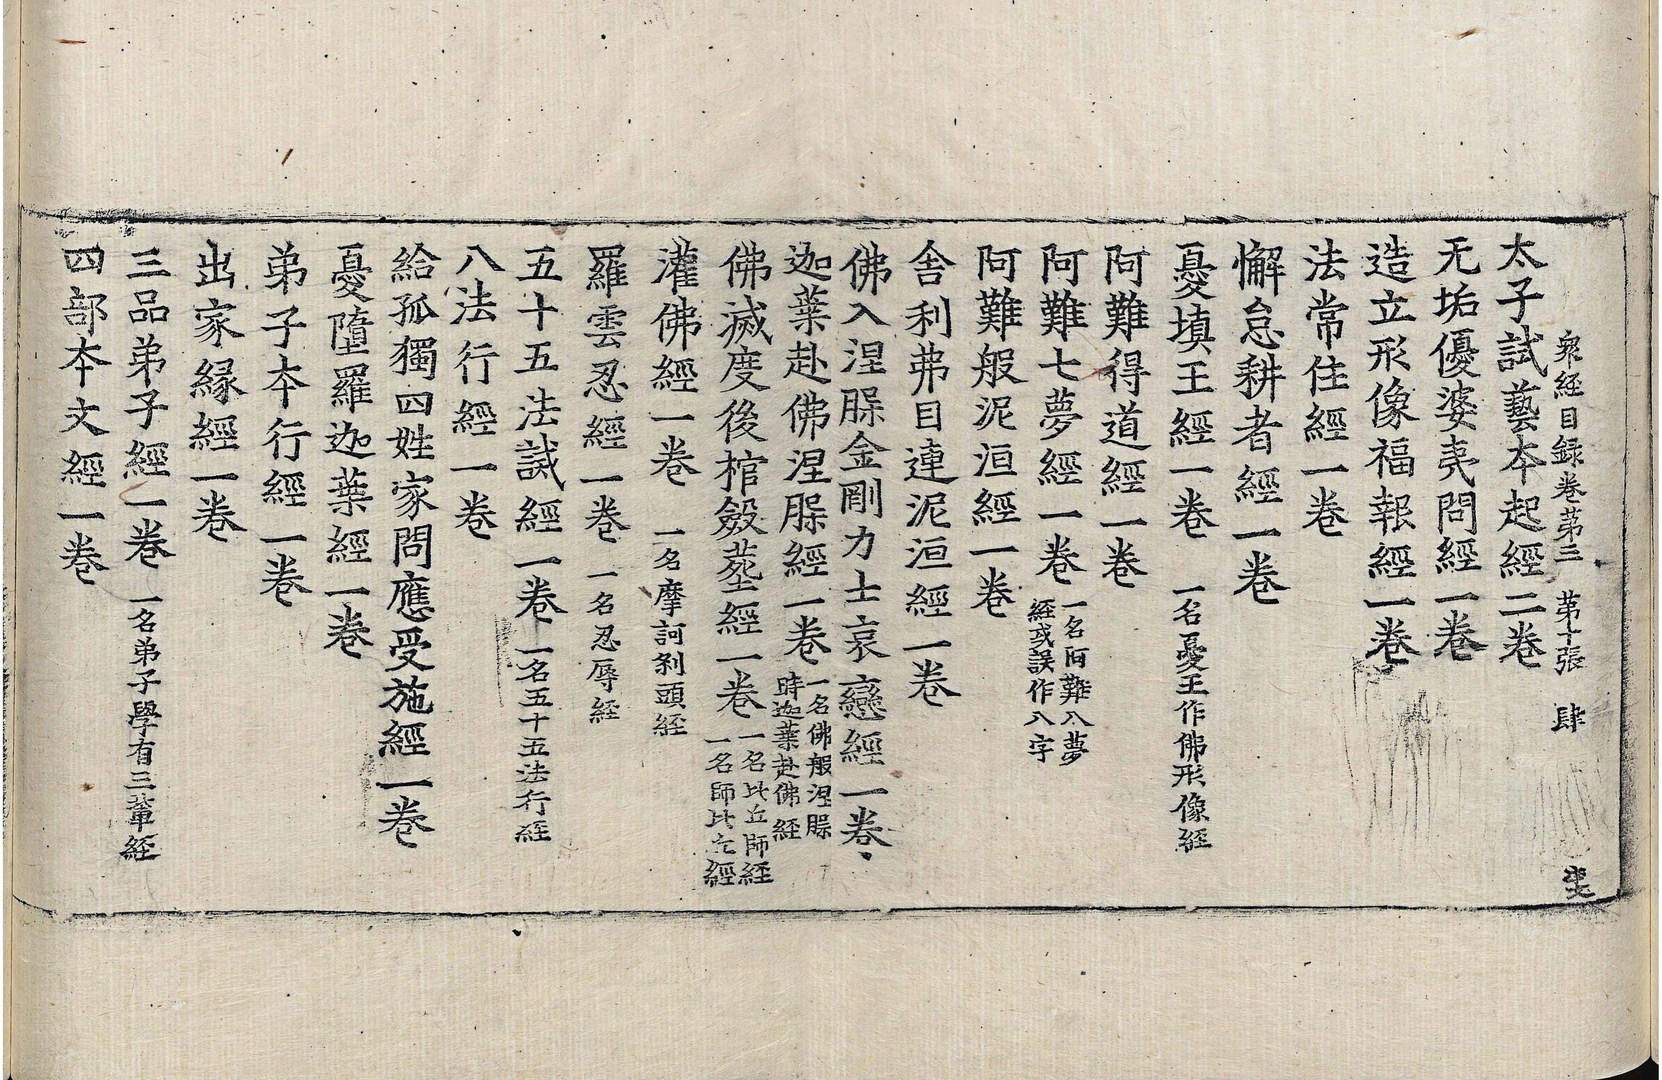 衆經目録卷第三　第十張　肆
太子試藝本起經二卷
无垢優婆夷問經一卷
造立形像福報經一卷
法常住經一卷
懈怠耕者經一卷
憂填王經一卷　一名憂王作佛形像經
阿難得道經一卷
阿難七夢經一卷　一名阿難八夢
經或誤作八字
阿難般泥洹經一卷
舍利弗目連泥洹經一卷
佛入涅槃金剛力士哀戀經一卷
迦葉赴佛涅槃經一卷　一名佛般涅槃
時迦葉赴佛經
佛滅度後棺斂葬經一卷　一名比丘師經
一名師比丘經
灌佛經一卷　一名摩訶剎頭經
羅雲忍經一卷　一名忍辱經
五十五法誡經一卷　一名五十五法行經
八法行經一卷
給孤獨四姓家問應受施經一卷
憂墮羅迦葉經一卷
弟子本行經一卷
出家緣經一卷
三品弟子經一卷　一名弟子學有三輩經
四部本文經一卷